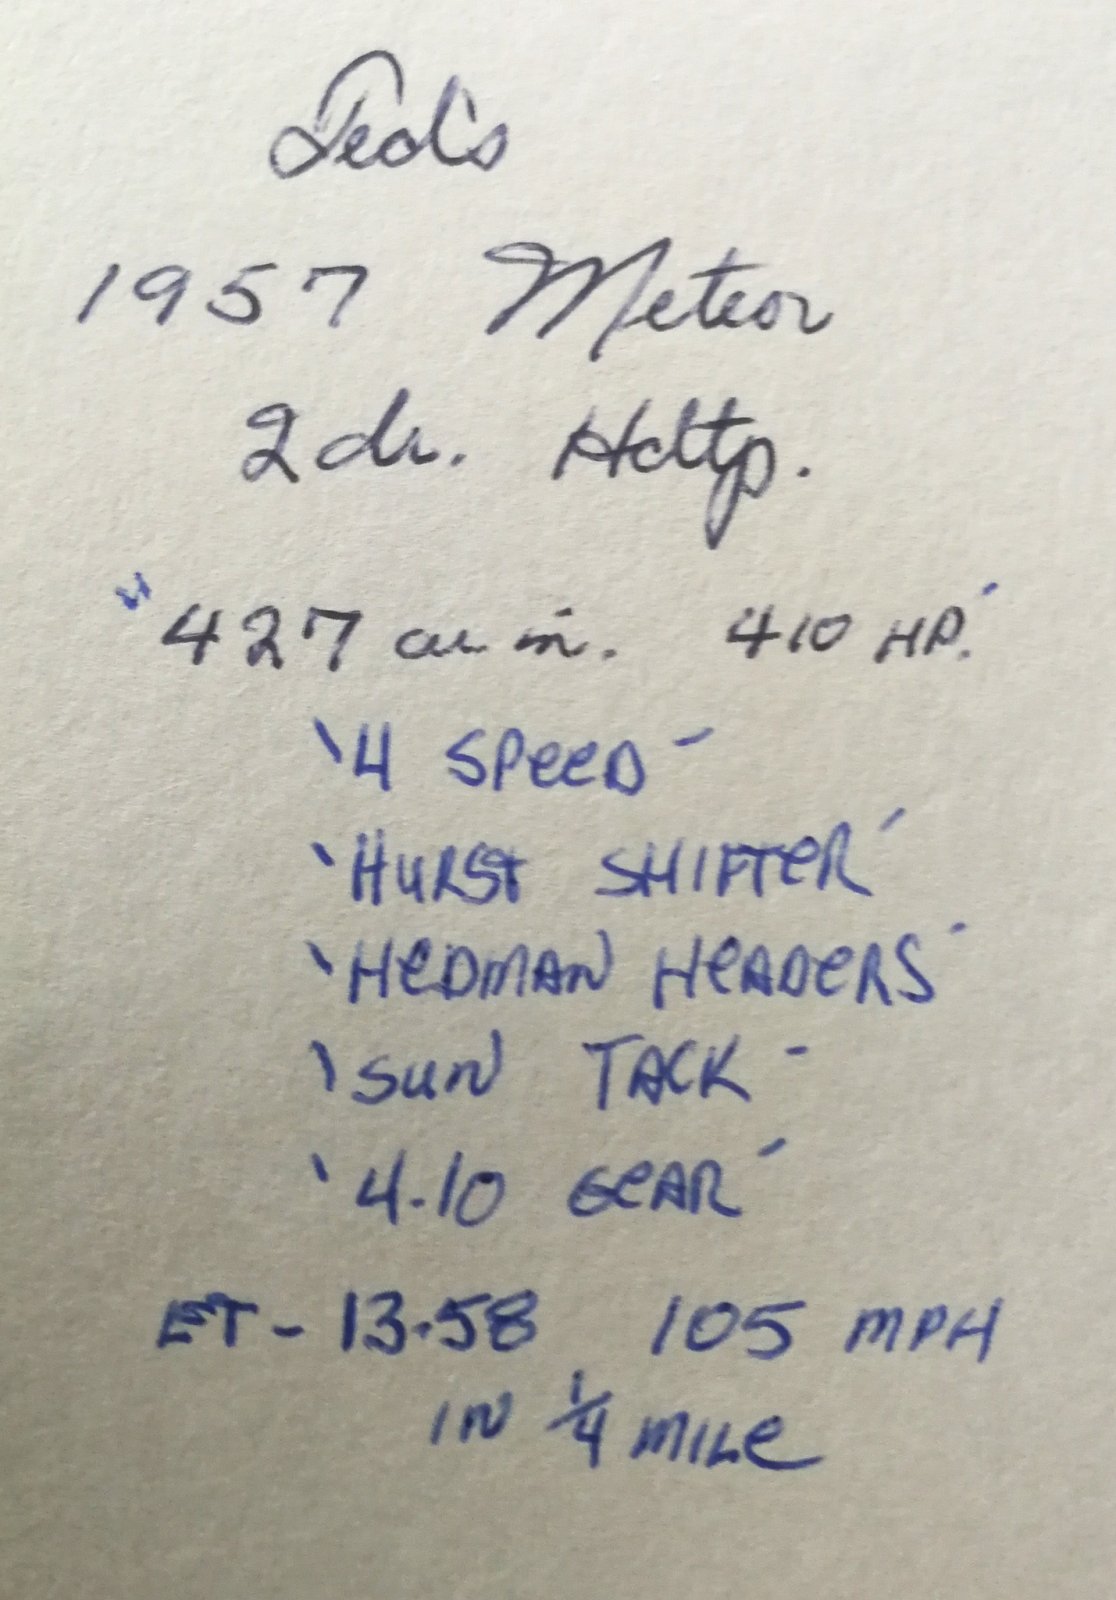 Ted's
1957 Meteor
2 dr. Hdtp.
"427 cu in. 410 HP.'
'4 SPeeD'
'HURST SHIFTeR'
'HeDMAN HeADeRS'
'SUN TACK'
'4.10 GeAR'
ET - 13.58 105 MPH
IN 1/4 MILe